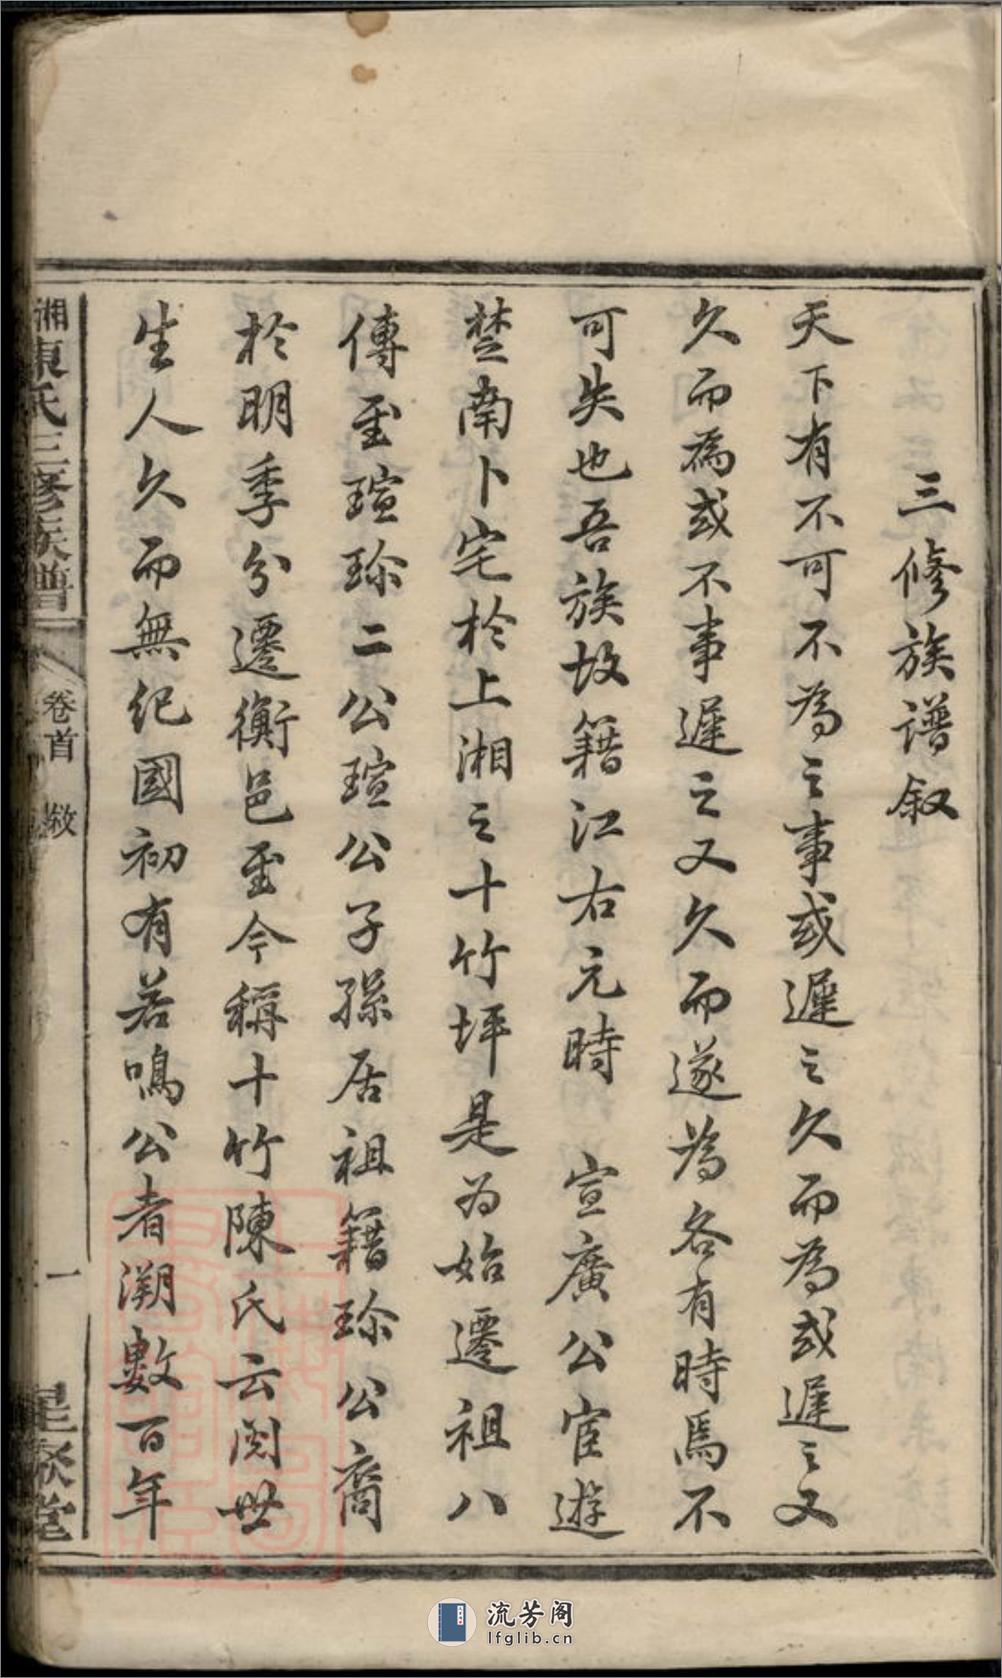 三修族譜叙
天下有不可不為之事或遲之久而為或遲之又
久而為或不事遲之又久而遂為各有時焉不
可失也吾族故籍江右元時 宣廣公宦遊
楚南卜宅於上湘之十竹坪是为始遷祖八
傳至瑄珎二公瑄公子孫居祖籍珎公裔
於明季分遷衡邑至今稱十竹陳氏云閱世
生人久而無紀國初有若鳴公者溯數百年
湘東陳氏三修族譜
卷首 敘
一
星聚堂
流芳阁
lfglib.cn